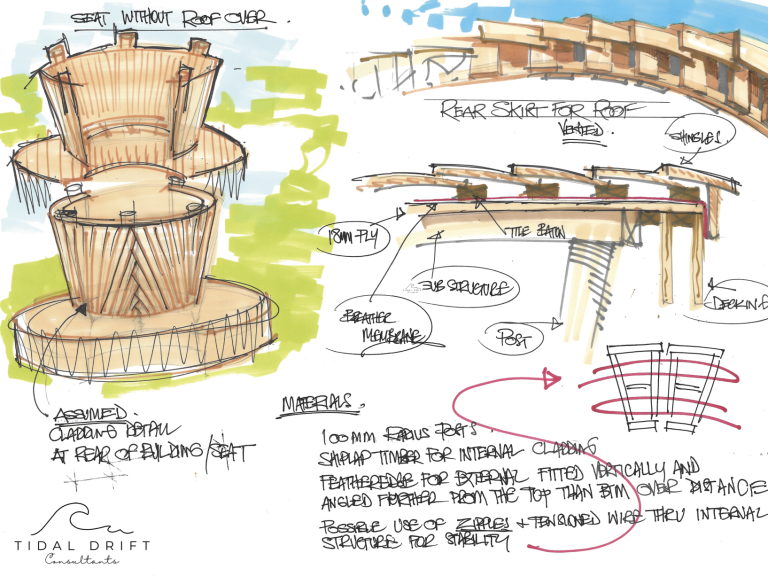 SEAT WITHOUT ROOF OVER.
REAR SKIRT FOR ROOF
VENTED.
SHINGLES
18MM PLY
TILE BATTN
SUB STRUCTURE
BREATHER
MEMBRANE
POST
DECKING
ASSUMED.
CLADDING DETAIL
AT REAR OF BUILDING/SEAT
MATERIALS.
100MM RADIUS POSTS.
SHIPLAP TIMBER FOR INTERNAL CLADDING
FEATHEREDGE FOR EXTERNAL FITTED VERTICALLY AND
ANGLED FURTHER FROM THE TOP THAN BTM OVER DISTANCE
POSSIBLE USE OF + TENSIONED WIRE THRU INTERNAL
STRUCTURE FOR STABILITY
TIDAL DRIFT
Consultants